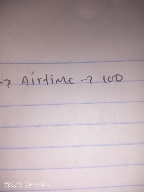 -> Airtime -> 100